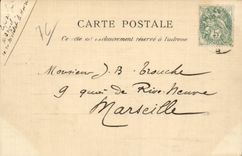 CARTE POSTALE
Ce côté est exclusivement réservé à l'adresse
Monsieur J-B. Trouche
9 quai de Rive-Neuve
Marseille
5